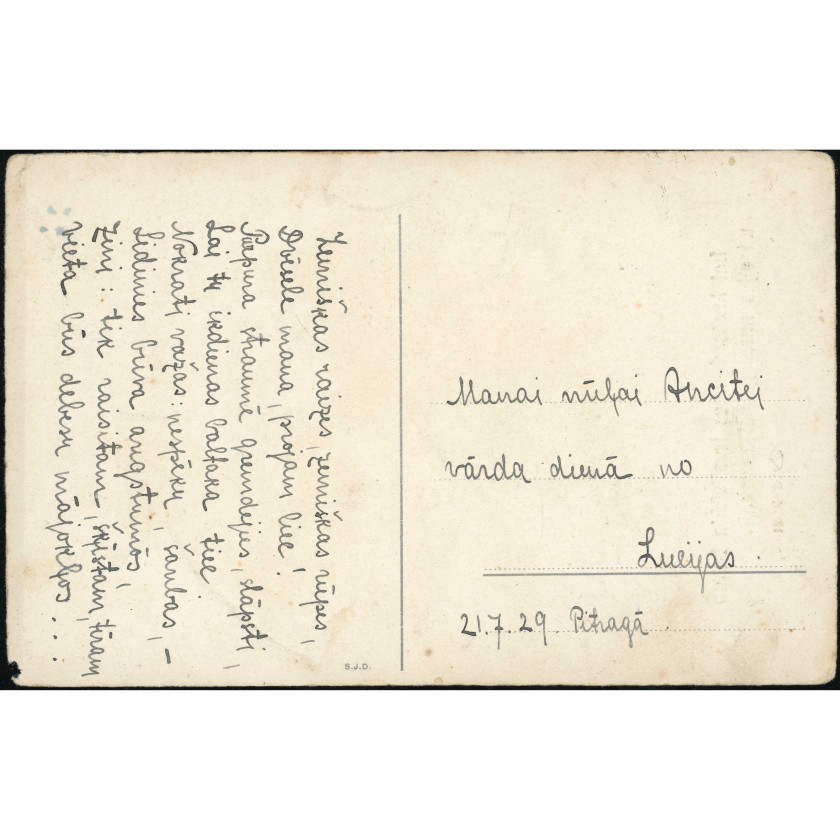 Zemiškas raizes, zemiškas rūpes,
Dvēsele mana, projām liec!
Purpura straumē gremdējies, slāpsti,
Lai tu ikdienas baltāka tiec!
Nokrati važas: nespēku, šaubas, –
Lidinies būva augstumos,
Zini: tik raisītam, šķīstam, tīram
vieta būs debesu mājokļos...
S.J.D.
Manai mūļai Ancitej
vārda dienā no
Lucijas.
21.7.29. Pitragā